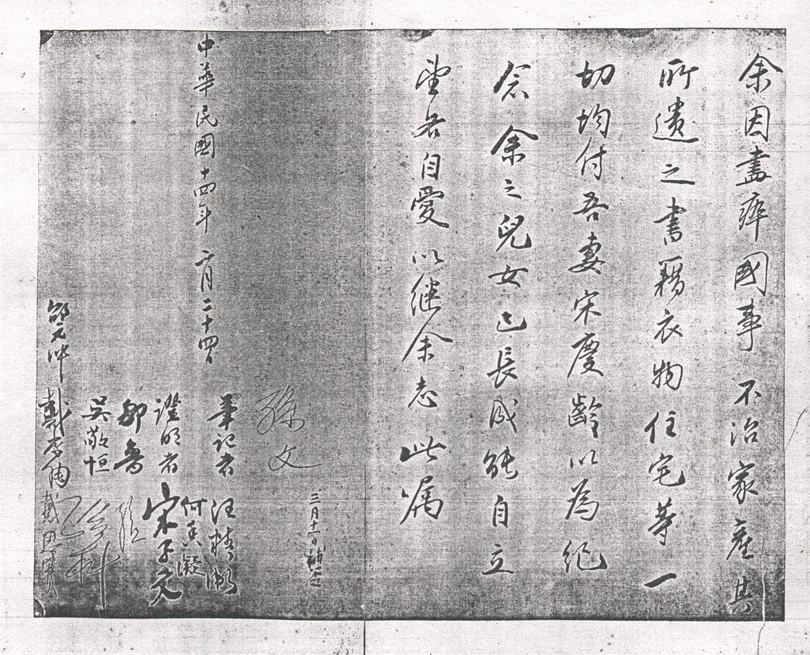 余因盡瘁國事不治家產其
所遺之書籍衣物住宅等一
切均付吾妻宋慶齡以為紀
念余之兒女已長成能自立
望各自愛以继余志此嘱
孫文
三月十一日補簽
中華民國十四年二月二十四日
筆記者 汪精衛
何香凝
證明者 宋子文
鄒魯
吳敬恒 孫科
戴季陶 戴恩賽
邵元冲